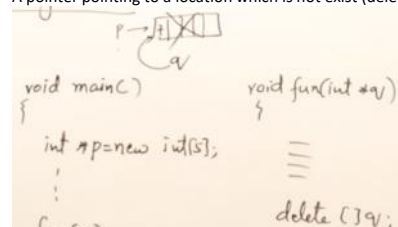 A pointer pointing to a location which is not exist (dele
p
q
void main()
{
int *p=new int[5];
void fun(int *q)
{
delete []q;